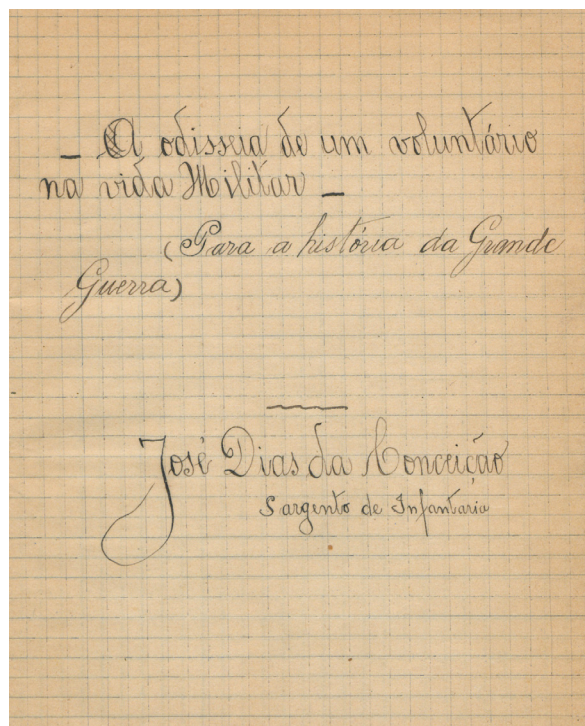 _ A odisseia de um voluntário
na vida Militar _
(Para a história da Grande
Guerra)
José Dias da Conceição
Sargento de Infantaria